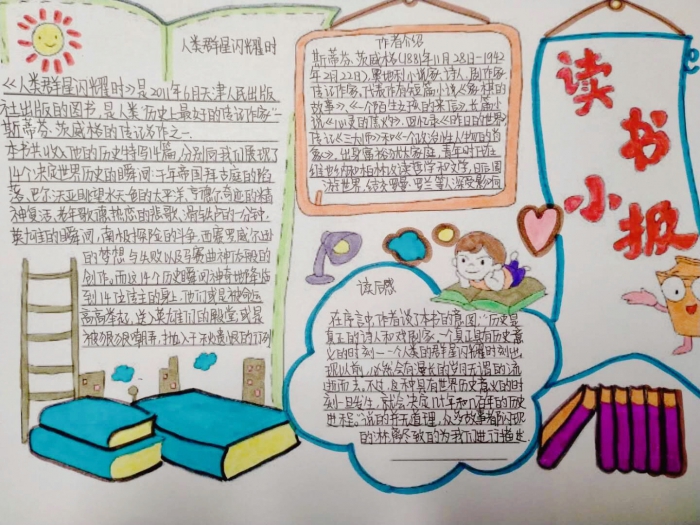 人类群星闪耀时
《人类群星闪耀时》是2011年6月天津人民出版
社出版的图书,是人类"历史上最好的传记作家"
斯蒂芬·茨威格的传记名作之一.
本书共收入他的历史特写14篇,分别向我们展现了
14个决定世界历史的瞬间:千年帝国拜占庭的陷
落、巴尔沃亚眺望水天一色的太平洋、亨德尔奇迹的精
神复活、老年歌德热恋的悲歌、滑铁卢的一分钟、
黄河的瞬间、南极探险的斗争、西塞罗、威尔逊
的梦想与失败以及马赛曲神价般的
创作。而这14个历史瞬间神奇地降临
到14位传主的身上,他们或是被命运
高高举起,送入英雄们的殿堂,或是
被狠狠嘲弄,抛入千秋遗恨的行列
作者介绍
斯蒂芬·茨威格(1881年11月28日-1942
年2月22日),奥地利小说家、诗人、剧作家、
传记作家,代表作有短篇小说《象棋的
故事》、《一个陌生女孩的来信》,长篇小
说《心灵的焦灼》,回忆录《昨日的世界》,
传记《三大师》和《一个政治性人物的肖
像》,出身富裕犹太家庭,青年时代在
维也纳和柏林攻读哲学和文学,日后周
游世界,结交罗曼·罗兰等人深受影响
读后感
在序言中,作者说了本书的意图:"历史是
真正的诗人和戏剧家,一个真正具有历史意
义的时刻——一个人类的群星闪耀时刻出
现以前,必然会有漫长的岁月无谓的流
逝而去,不过,这种具有世界历史意义的时
刻一旦发生,就会决定几十年和几百年的历史
进程。"说的并无道理,众多故事都闪现
的淋漓尽致的为我们进行描述
读书小报